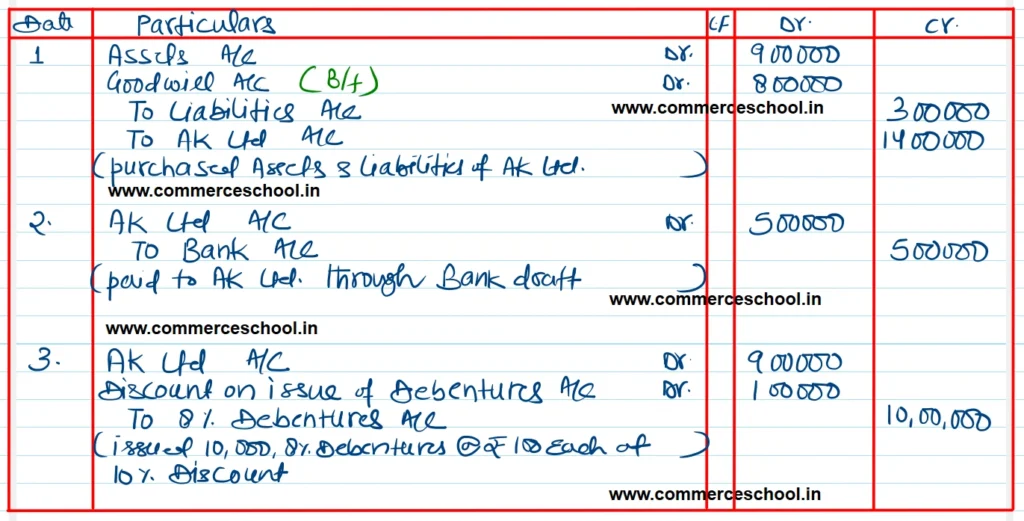 Date Particulars LF Dr. Cr.
1 Assets A/c Dr. 900000
Goodwill A/C (B/f) Dr. 800000
To Liabilities A/c www.commerceschool.in 300000
To AK Ltd A/C 1400000
(purchased Assets & Liabilities of AK Ltd. )
www.commerceschool.in
2. AK Ltd A/C Dr. 500000
To Bank A/c 500000
(paid to AK Ltd. through Bank draft )
www.commerceschool.in
www.commerceschool.in
3. AK Ltd A/C Dr. 900000
Discount on issue of Debentures A/c Dr. 100000
To 8% Debentures A/c 10,00,000
(issued 10,000, 8% Debentures @ ₹ 100 Each at )
10% Discount
www.commerceschool.in